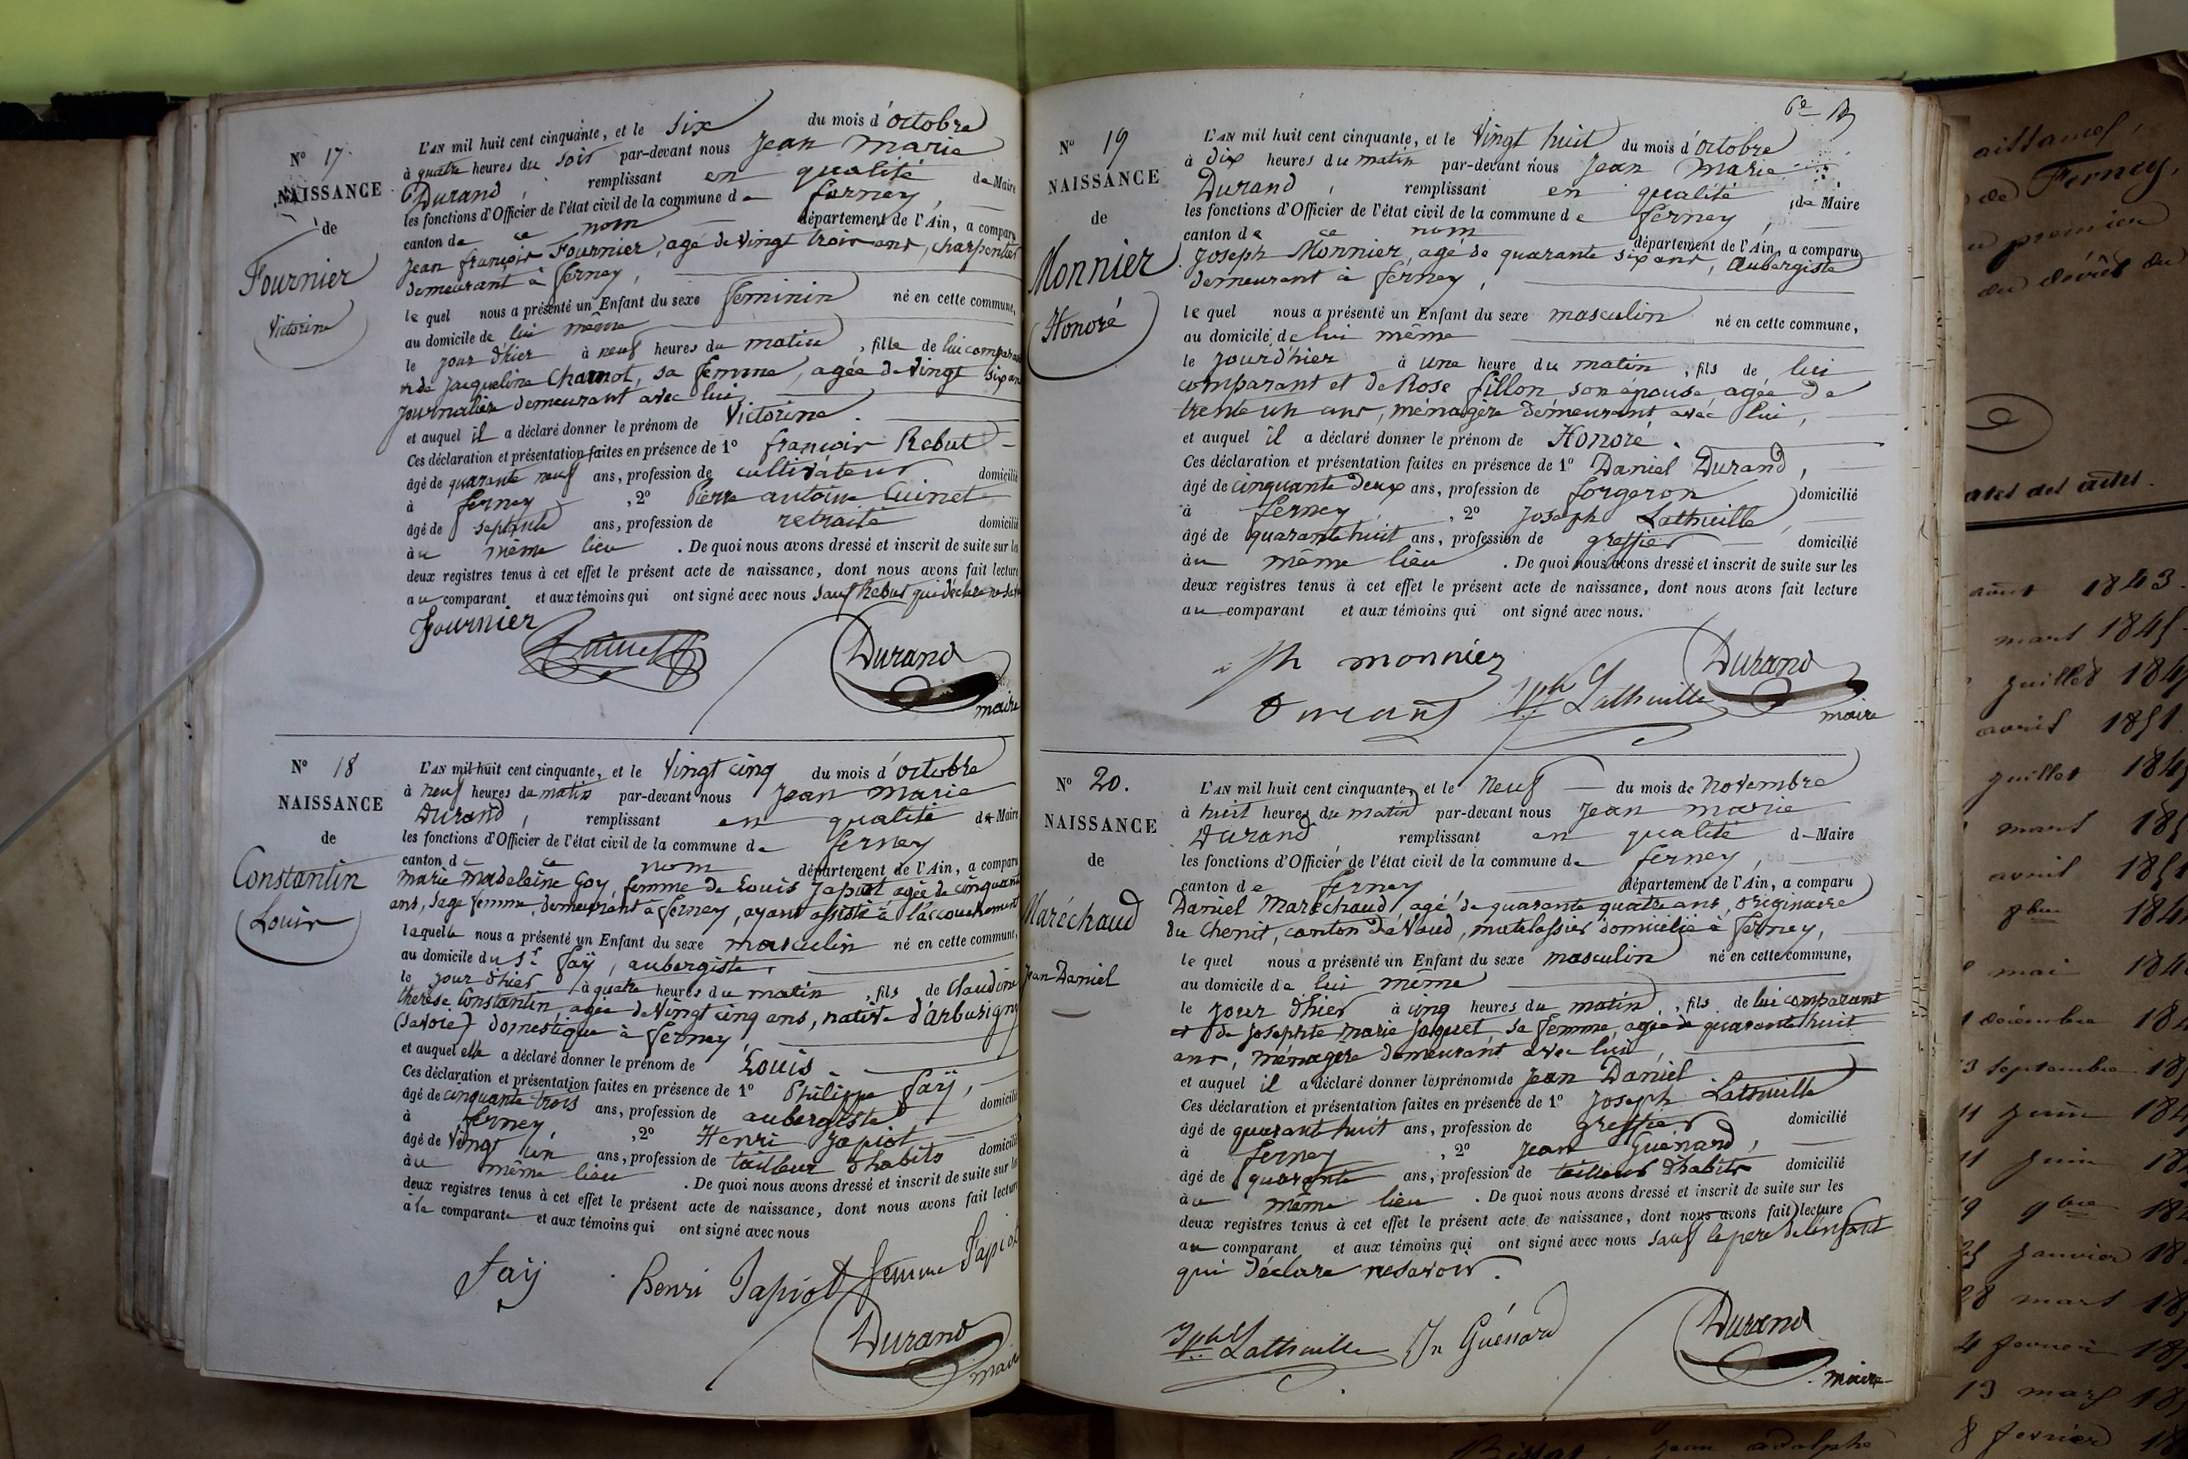 N° 17.
NAISSANCE
de
Fournier
Victorine
L'AN mil huit cent cinquante, et le six du mois d'octobre
à quatre heures du soir par-devant nous Jean Marie
Durand, remplissant en qualité de Maire
les fonctions d'Officier de l'état civil de la commune de ferney,
canton de ce nom département de l'Ain, a comparu
Jean françois Fournier, agé de vingt trois ans, charpentier
demeurant à ferney,
le quel nous a présenté un Enfant du sexe feminin né en cette commune,
au domicile de lui même
le jour d'hier à neuf heures du matin, fille de lui comparant
et de Jacqueline Charnot, sa femme, agée de vingt six ans
journalière demeurant avec lui,
et auquel il a déclaré donner le prénom de Victorine.
Ces déclaration et présentation faites en présence de 1° françois Rebut
âgé de quarante neuf ans, profession de cultivateur domicilié
à ferney, 2° Pierre antoine Cuinet
âgé de septante ans, profession de retraité domicilié
au même lieu. De quoi nous avons dressé et inscrit de suite sur les
deux registres tenus à cet effet le présent acte de naissance, dont nous avons fait lecture
au comparant et aux témoins qui ont signé avec nous sauf Rebut qui déclare ne savoir
Fournier
Durand
maire
N° 18
NAISSANCE
de
Constantin
Louis
L'AN mil huit cent cinquante, et le vingt cinq du mois d'octobre
à neuf heures du matin par-devant nous Jean Marie
Durand, remplissant en qualité de Maire
les fonctions d'Officier de l'état civil de la commune de ferney
canton de ce nom département de l'Ain, a comparu
marie madeleine Goy, femme de Louis Japiot agée de cinquante
ans, sage femme, demeurant à ferney, ayant assisté à l'accouchement
laquelle nous a présenté un Enfant du sexe masculin né en cette commune,
au domicile du Sr. faÿ, aubergiste,
le jour d'hier à quatre heures du matin, fils de Claudine
therese Constantin, agée de vingt cinq ans, native d'arbusigny
(Savoie) domestique à ferney,
et auquel elle a déclaré donner le prénom de Louis.
Ces déclaration et présentation faites en présence de 1° Philippe faÿ,
âgé de cinquante trois ans, profession de aubergiste domicilié
à ferney, 2° Henri Japiot
âgé de vingt un ans, profession de tailleur d'habits domicilié
au même lieu. De quoi nous avons dressé et inscrit de suite sur les
deux registres tenus à cet effet le présent acte de naissance, dont nous avons fait lecture
à la comparante et aux témoins qui ont signé avec nous
Faÿ henri Japiot femme Japiot
Durand
maire
N° 19
NAISSANCE
de
Monnier
Honoré
L'AN mil huit cent cinquante, et le vingt huit du mois d'octobre
à dix heures du matin par-devant nous Jean Marie
Durand, remplissant en qualité de Maire
les fonctions d'Officier de l'état civil de la commune de ferney,
canton de ce nom département de l'Ain, a comparu
Joseph Monnier, agé de quarante six ans, aubergiste
demeurant à ferney,
le quel nous a présenté un Enfant du sexe masculin né en cette commune,
au domicile de lui même
le jour d'hier à une heure du matin, fils de lui
comparant et de Rose fillon son épouse, agée de
trente un ans, ménagère demeurant avec lui,
et auquel il a déclaré donner le prénom de Honoré.
Ces déclaration et présentation faites en présence de 1° Daniel Durand,
âgé de cinquante deux ans, profession de forgeron domicilié
à ferney, 2° Joseph Lathuille
âgé de quarante huit ans, profession de greffier domicilié
au même lieu. De quoi nous avons dressé et inscrit de suite sur les
deux registres tenus à cet effet le présent acte de naissance, dont nous avons fait lecture
au comparant et aux témoins qui ont signé avec nous.
Jh monnier
Durand Jph Lathuille Durand
maire
N° 20.
NAISSANCE
de
Maréchaud
Jean Daniel
L'AN mil huit cent cinquante, et le neuf du mois de novembre
à huit heures du matin par-devant nous Jean Marie
Durand remplissant en qualité de Maire
les fonctions d'Officier de l'état civil de la commune de ferney,
canton de ferney département de l'Ain, a comparu
Daniel Maréchaud, agé de quarante quatre ans, originaire
du Chenit, canton de Vaud, matelassier domicilié à ferney,
le quel nous a présenté un Enfant du sexe masculin né en cette commune,
au domicile de lui même
le jour d'hier à cinq heures du matin, fils de lui comparant
et de Josephte marie Jaquet, sa femme, agée de quarante huit
ans, ménagère demeurant avec lui,
et auquel il a déclaré donner les prénoms de Jean Daniel.
Ces déclaration et présentation faites en présence de 1° Joseph Lathuille
âgé de quarant huit ans, profession de greffier domicilié
à ferney, 2° Jean Guénard,
âgé de quarante ans, profession de tailleur d'habits domicilié
au même lieu. De quoi nous avons dressé et inscrit de suite sur les
deux registres tenus à cet effet le présent acte de naissance, dont nous avons fait lecture
au comparant et aux témoins qui ont signé avec nous sauf le père de l'enfant
qui déclare ne savoir.
Jph Lathuille Jn Guénard Durand
maire
de Ferney,
premier
août 1843.
mars 1845
juillet 184
avril 1851
juillet 184
mars 185
avril 1851
8bre 184
mai 184
décembre 184
3 septembre 18
11 juin 184
11 juin 18
9 9bre 18
25 janvier 18
28 mars 18
4 fevrier 18
13 mars 18
8 fevrier 18
jean adolphe